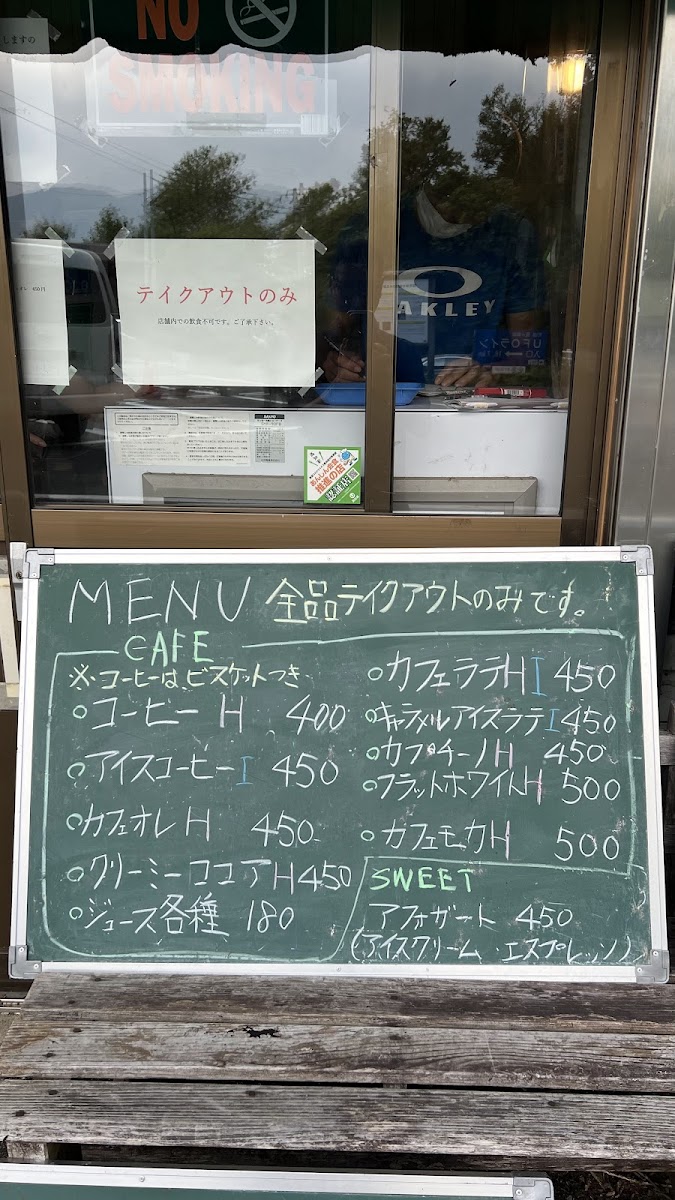 NO
SMOKING
しますの
テイクアウトのみ
店舗内での飲食不可です。ご了承下さい。
450円
OAKLEY
UFOライン
あんしん会食
推進の店
認証店
MENU 全品テイクアウトのみです。
CAFE
※コーヒーは、ビスケットつき
コーヒー H 400
アイスコーヒー I 450
カフェオレ H 450
クリーミーココア H 450
ジュース各種 180
カフェラテ H I 450
キャラメルアイスラテ I 450
カプチーノ H 450
フラットホワイト H 500
カフェモカ H 500
SWEET
アフォガート 450
(アイスクリーム エスプレッソ)